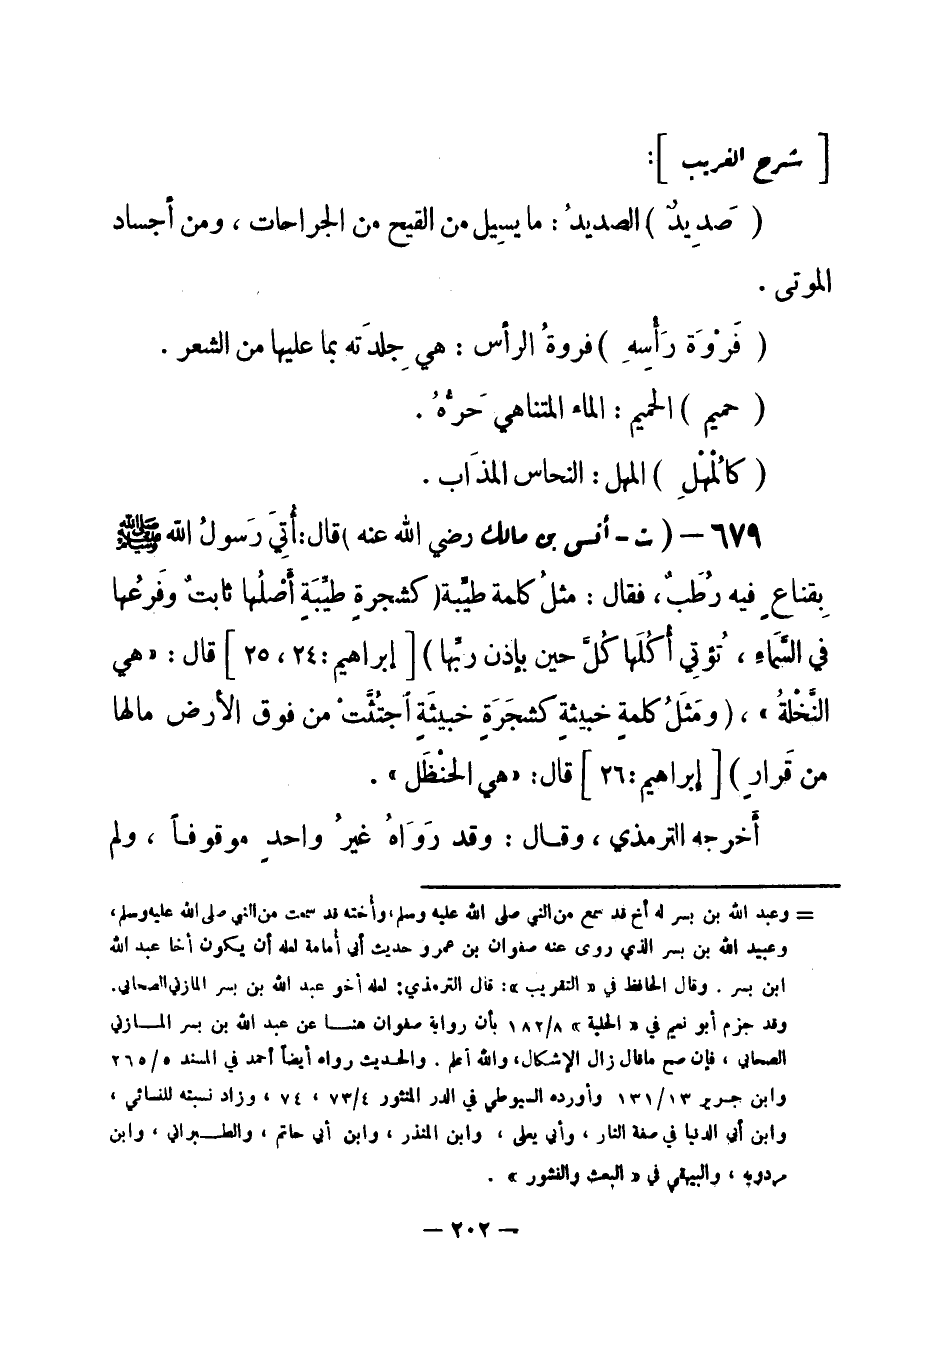 [ شرح الغريب ]:
( صَدِيدٌ ) الصديدُ : ما يسيل من القيح من الجراحات ، ومن أجساد
الموتى .
( فَرْوَة رَأْسِهِ ) فروةُ الرأس : هي جِلدَته بما عليها من الشعر .
( حميم ) الحميم : الماء المتناهي حَرُّهُ .
( كالْمُهْلِ ) المهل : النحاس المذَاب .
٦٧٩ – ( ت - أنس بن مالك رضي الله عنه ) قال: أُتِيَ رَسولُ الله ﷺ
بِقناعٍ فيه رُطَبٌ ، فقال : مثلُ كلمة طيِّبة ( كشجرةٍ طيِّبَةٍ أَصْلُها ثابتٌ وفَرعُها
في السَّمَاءِ ، تُؤتي أُكُلَها كُلَّ حين بإذن ربِّها ) [ إبراهيم : ٢٤ ، ٢٥ ] قال : « هي
النَّخْلةُ » ، ( ومَثَلُ كلمةٍ خبيثةٍ كشجَرَةٍ خبيثَةٍ اجتُثَّتْ من فوق الأرض مالها
من قَرارٍ ) [ إبراهيم : ٢٦ ] قال : « هي الحنْظَل » .
أَخرجه الترمذي ، وقال : وقد رَوَاهُ غيرُ واحدٍ موقوفاً ، ولم
= وعبد الله بن بسر له أخ قد سمع من النبي صلى الله عليه وسلم، وأخته قد سمعت من النبي صلى الله عليه وسلم،
وعبيد الله بن بسر الذي روى عنه صفوان بن عمرو حديث أبي أمامة لعله أن يكون أخا عبد الله
ابن بسر . وقال الحافظ في « التقريب »: قال الترمذي: لعله أخو عبد الله بن بسر المازني الصحابي.
وقد جزم أبو نعيم في « الحلية » ١٨٢/٨ بأن رواية صفوان هنا عن عبد الله بن بسر المازني
الصحابي ، فإن صح ماقال زال الإشكال، والله أعلم . والحديث رواه أيضاً أحمد في المسند ٢٦٥/٥
وابن جرير ١٣١/١٣ وأورده السيوطي في الدر المنثور ٧٣/٤ ، ٧٤ ، وزاد نسبته للنسائي ،
وابن أبي الدنيا في صفة النار ، وأبي يعلى ، وابن المنذر ، وابن أبي حاتم ، والطبراني ، وابن
مردويه ، والبيهقي في « البعث والنشور » .
– ٢٠٢ –